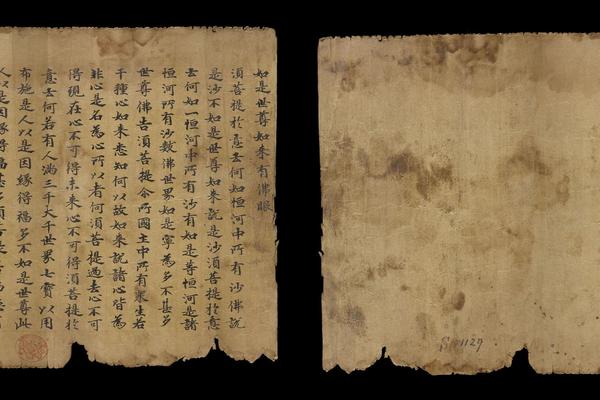 如是世尊如来有佛眼
須菩提於意云何如恒河中所有沙佛說
是沙不如是世尊如来說是沙須菩提於意
云何如一恒河中所有沙有如是等恒河是諸
恒河所有沙數佛世界如是寧為多不甚多
世尊佛告須菩提尒所國土中所有衆生若
干種心如来悉知何以故如来說諸心皆為
非心是名為心所以者何須菩提過去心不可
得現在心不可得未来心不可得須菩提於
意云何若有人滿三千大千世界七寶以用
布施是人以是因緣得福多不如是世尊此
人以是因緣得福甚多須
1129